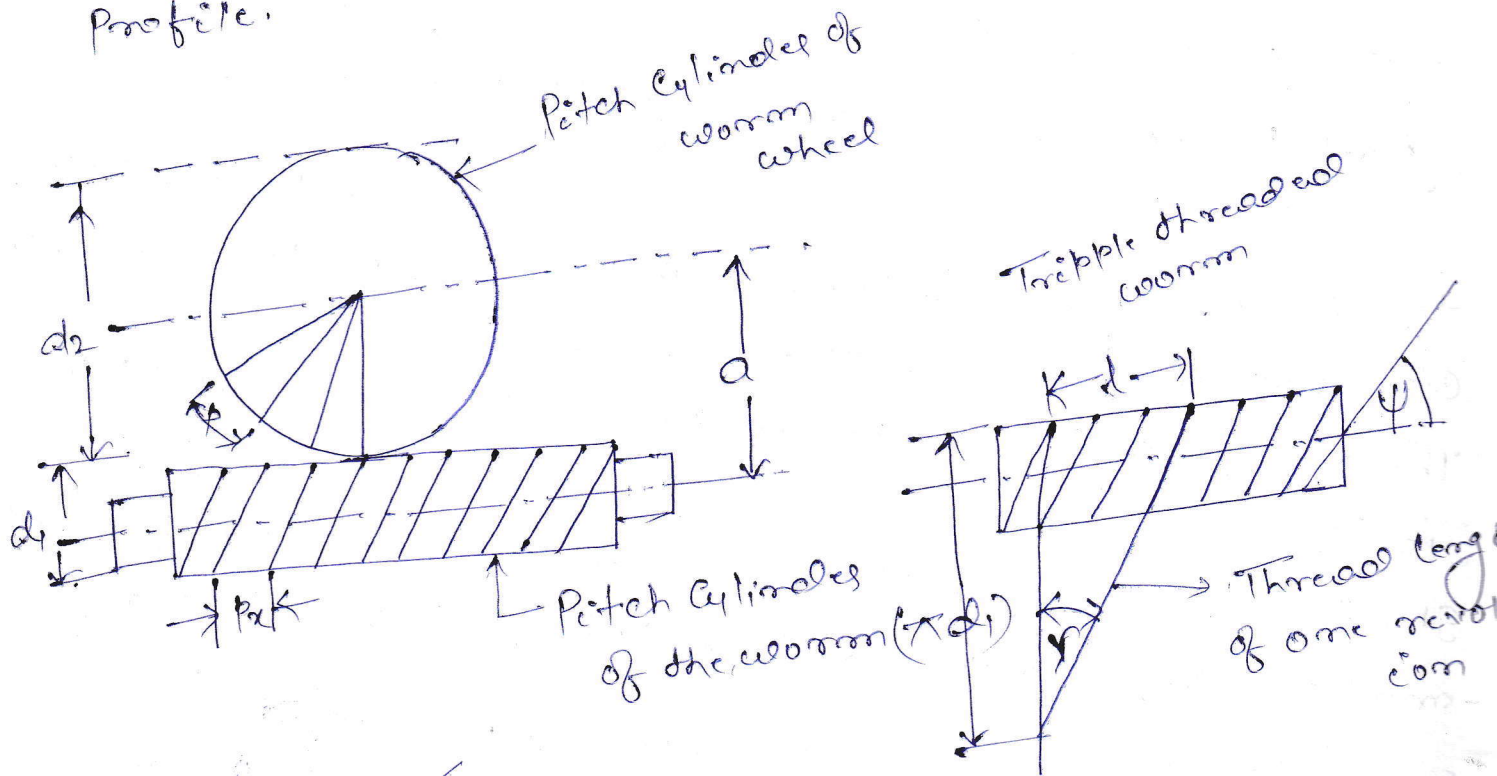 Profile.
Pitch Cylinder of
worm
wheel
d2
a
P
d1
Px
Pitch Cylinder
of the worm (πd1)
Tripple threaded
worm
l
ψ
γ
Thread leng
of one revol
ion